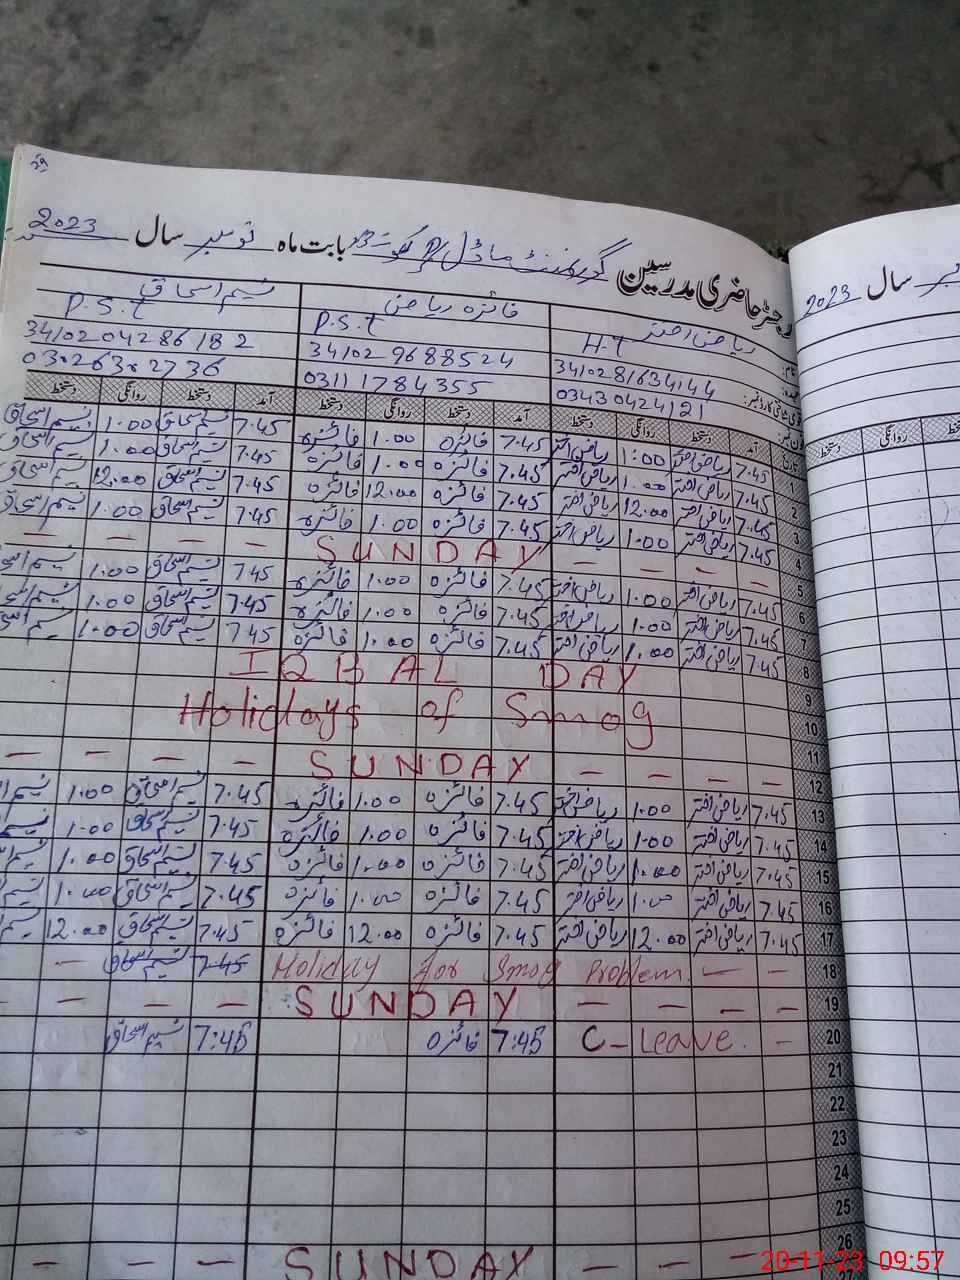 رجسٹر حاضری مدرسین گورنمنٹ ماڈل بابت ماہ نومبر سال 2023
سال 2023
ریاض اختر فائزہ ریاض نسیم اسحاق
H.T P.S.T P.S.T
34102 9688524 34102 0428618 2
0343 0424121 0311 1784355
آمد دستخط روانگی دستخط آمد دستخط روانگی دستخط آمد دستخط روانگی دستخط
روانگی دستخط
1 7.45 ریاض اختر 1:00 ریاض اختر 7.45 فائزہ 1.00 فائزہ 7.45 نسیم اسحاق 1.00 نسیم اسحاق
2 7.45 ریاض اختر 1.00 ریاض اختر 7.45 فائزہ 1.00 فائزہ 7.45 نسیم اسحاق 1.00 نسیم اسحاق
3 7.45 ریاض اختر 12.00 ریاض اختر 7.45 فائزہ 12.00 فائزہ 7.45 نسیم اسحاق 12.00 نسیم اسحاق
4 7.45 ریاض اختر 1.00 ریاض اختر 7.45 فائزہ 1.00 فائزہ 7.45 نسیم اسحاق 1.00 نسیم اسحاق
5 — — — — SUNDAY — — — —
6 7.45 ریاض اختر 1.00 ریاض اختر 7.45 فائزہ 1.00 فائزہ 7.45 نسیم اسحاق 1.00 نسیم اسحاق
7 7.45 ریاض اختر 1.00 ریاض اختر 7.45 فائزہ 1.00 فائزہ 7.45 نسیم اسحاق 1.00 نسیم اسحاق
8 7.45 ریاض اختر 1.00 ریاض اختر 7.45 فائزہ 1.00 فائزہ 7.45 نسیم اسحاق 1.00 نسیم
9 IQBAL DAY
10 Holidays of Smog
11
12 — — — — SUNDAY — — — —
13 7.45 ریاض اختر 1.00 ریاض اختر 7.45 فائزہ 1.00 فائزہ 7.45 نسیم اسحاق 1.00 نسیم
14 7.45 ریاض اختر 1.00 ریاض اختر 7.45 فائزہ 1.00 فائزہ 7.45 نسیم اسحاق 1.00 نسیم
15 7.45 ریاض اختر 1.00 ریاض اختر 7.45 فائزہ 1.00 فائزہ 7.45 نسیم اسحاق 1.00 نسیم
16 7.45 ریاض اختر 1.00 ریاض اختر 7.45 فائزہ 1.00 فائزہ 7.45 نسیم اسحاق 1.00 نسیم
17 7.45 ریاض اختر 12.00 ریاض اختر 7.45 فائزہ 12.00 فائزہ 7.45 نسیم اسحاق 12.00 نسیم
18 Holiday for Smog Problem — — 7.45 نسیم اسحاق —
19 — — — SUNDAY — — — —
20 C-Leave. — 7:45 فائزہ 7:45 نسیم اسحاق
21
22
23
24
25
26 — — — SUNDAY — — — —
20-11-23 09:57